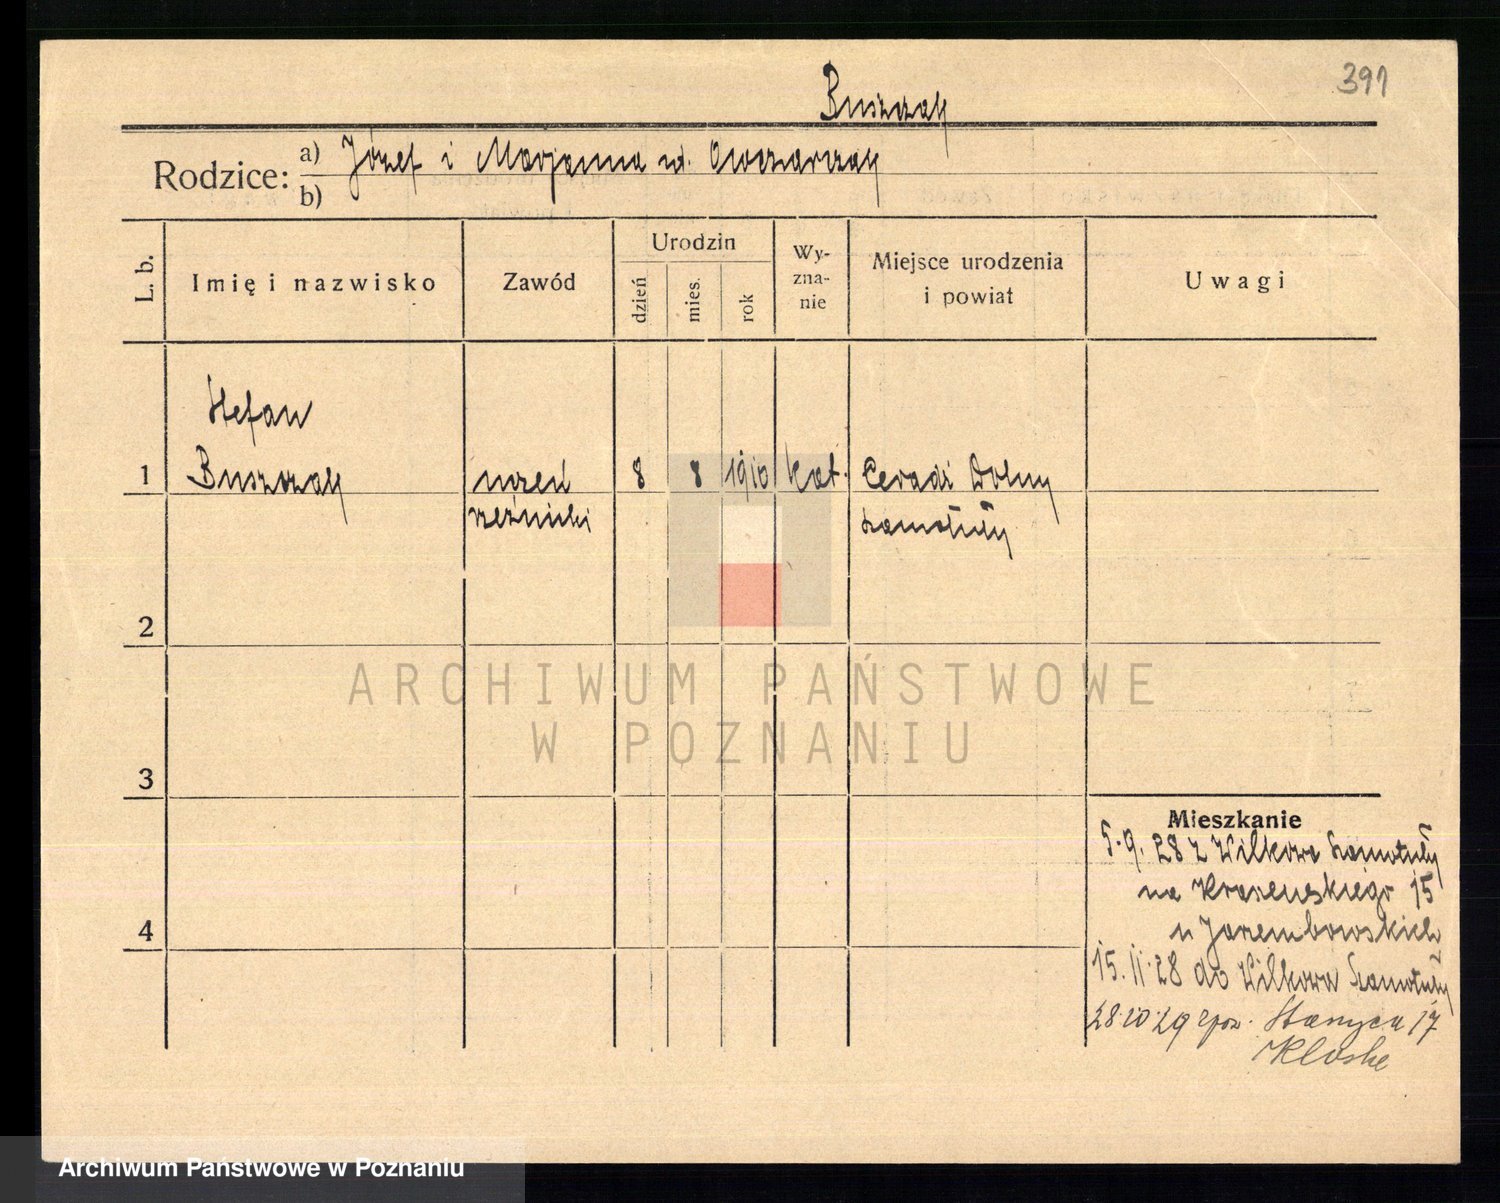 391
Buszczak
Rodzice: a) Józef i Marjanna ur. Owczarzak
b)
L. b. Imię i nazwisko Zawód Urodzin dzień mies. rok Wy-zna-nie Miejsce urodzenia i powiat Uwagi
Stefan
1 Buszczak uczeń 8 8 1910 kat. Ceradz Dolny
rzeźnicki Szamotuły
2
ARCHIWUM PAŃSTWOWE
W POZNANIU
3
Mieszkanie
5.9.28 z Wilkowa Szamotuły
na Kraszewskiego 15
4
u Jarembowskich
15.11.28 do Wilkowa Szamotuły
28.10.29 17
Kloske
Archiwum Państwowe w Poznaniu